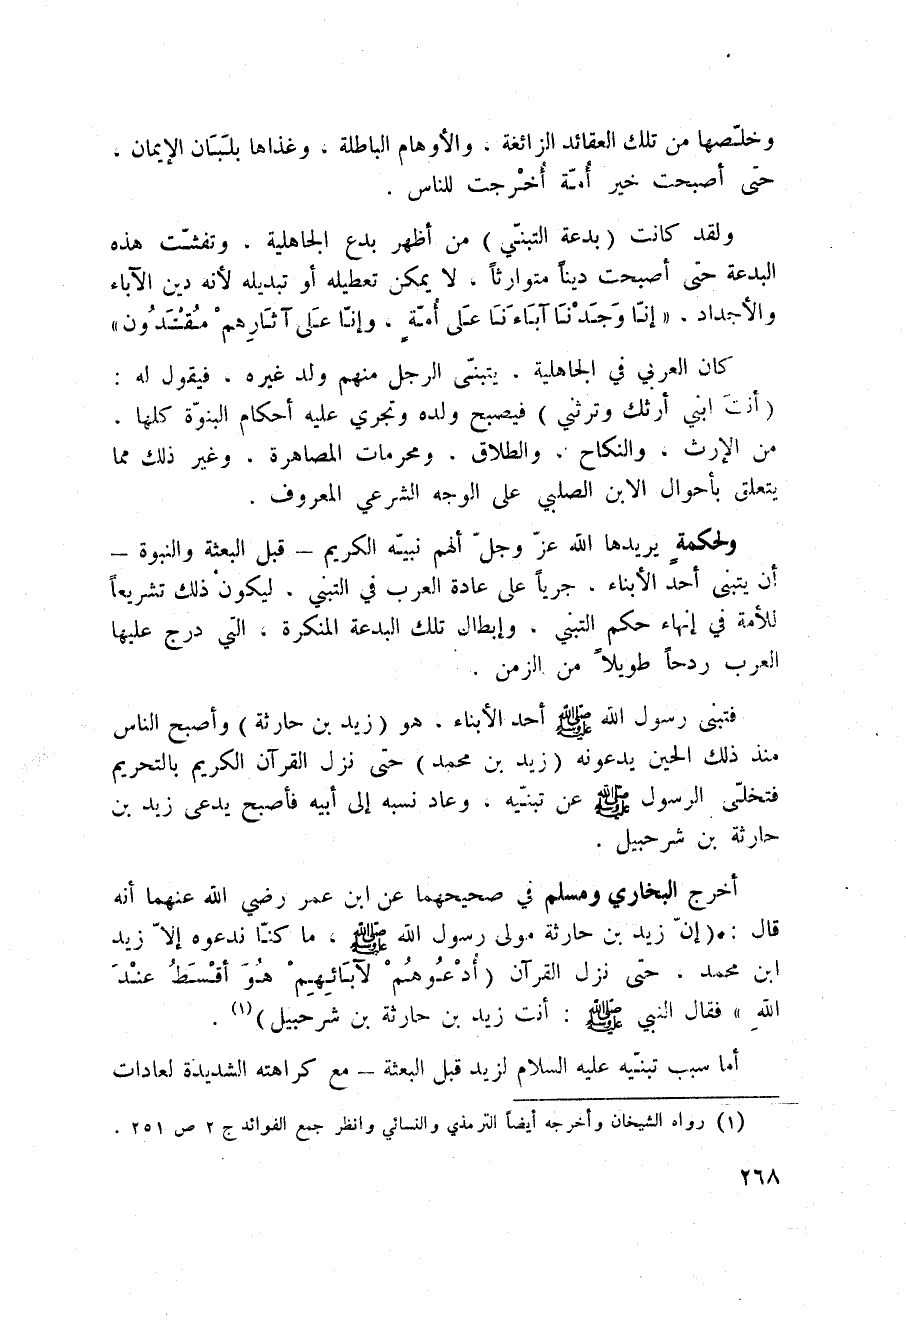 وخلّصها من تلك العقائد الزائغة ، والأوهام الباطلة ، وغذاها بلَبَان الإيمان ،
حتّى أصبحت خير أُمّة أُخْرجت للناس .
ولقد كانت ( بدعة التبنّي ) من أظهر بدع الجاهلية . وتفشّت هذه
البدعة حتّى أصبحت ديناً متوارثاً ، لا يمكن تعطيله أو تبديله لأنه دين الآباء
والأجداد . « إنّا وَجَدْنَا آبَاءَنَا عَلى أُمّةٍ . وإنّا عَلى آثارِهِمْ مُقْتَدُون»
كان العربي في الجاهلية . يتبنّى الرجل منهم ولد غيره . فيقول له :
( أنتَ ابني أرثك وترثني ) فيصبح ولده وتجري عليه أحكام البنوّة كلها .
من الإرث ، والنكاح ، والطلاق . ومحرمات المصاهرة . وغير ذلك مما
يتعلق بأحوال الابن الصلبي على الوجه الشرعي المعروف .
ولحكمةٍ يريدها الله عزّ وجلّ ألهم نبيّه الكريم – قبل البعثة والنبوة –
أن يتبنى أحدَ الأبناء . جرياً على عادة العرب في التبني . ليكون ذلك تشريعاً
للأمة في إنهاء حكم التبني . وإبطال تلك البدعة المنكرة ، التي درج عليها
العرب ردحاً طويلاً من الزمن .
فتبنى رسول الله ﷺ أحد الأبناء . هو ( زيد بن حارثة ) وأصبح الناس
منذ ذلك الحين يدعونه ( زيد بن محمد ) حتّى نزل القرآن الكريم بالتحريم
فتخلّى الرسول ﷺ عن تبنّيه ، وعاد نسبه إلى أبيه فأصبح يدعى زيد بن
حارثة بن شرحبيل .
أخرج البخاري ومسلم في صحيحهما عن ابن عمر رضي الله عنهما أنه
قال : ( إنّ زيد بن حارثة مولى رسول الله ﷺ ، ما كنّا ندعوه إلاّ زيد
ابن محمد . حتّى نزل القرآن ( أُدْعُوهُمْ لآبَائِهِمْ هُوَ أقْسَطُ عنْدَ
اللهِ » فقال النبي ﷺ : أنت زيد بن حارثة بن شرحبيل )(١) .
أما سبب تبنّيه عليه السلام لزيد قبل البعثة – مع كراهته الشديدة لعادات
(١) رواه الشيخان وأخرجه أيضاً الترمذي والنسائي وانظر جمع الفوائد ج ٢ ص ٢٥١ .
٢٦٨